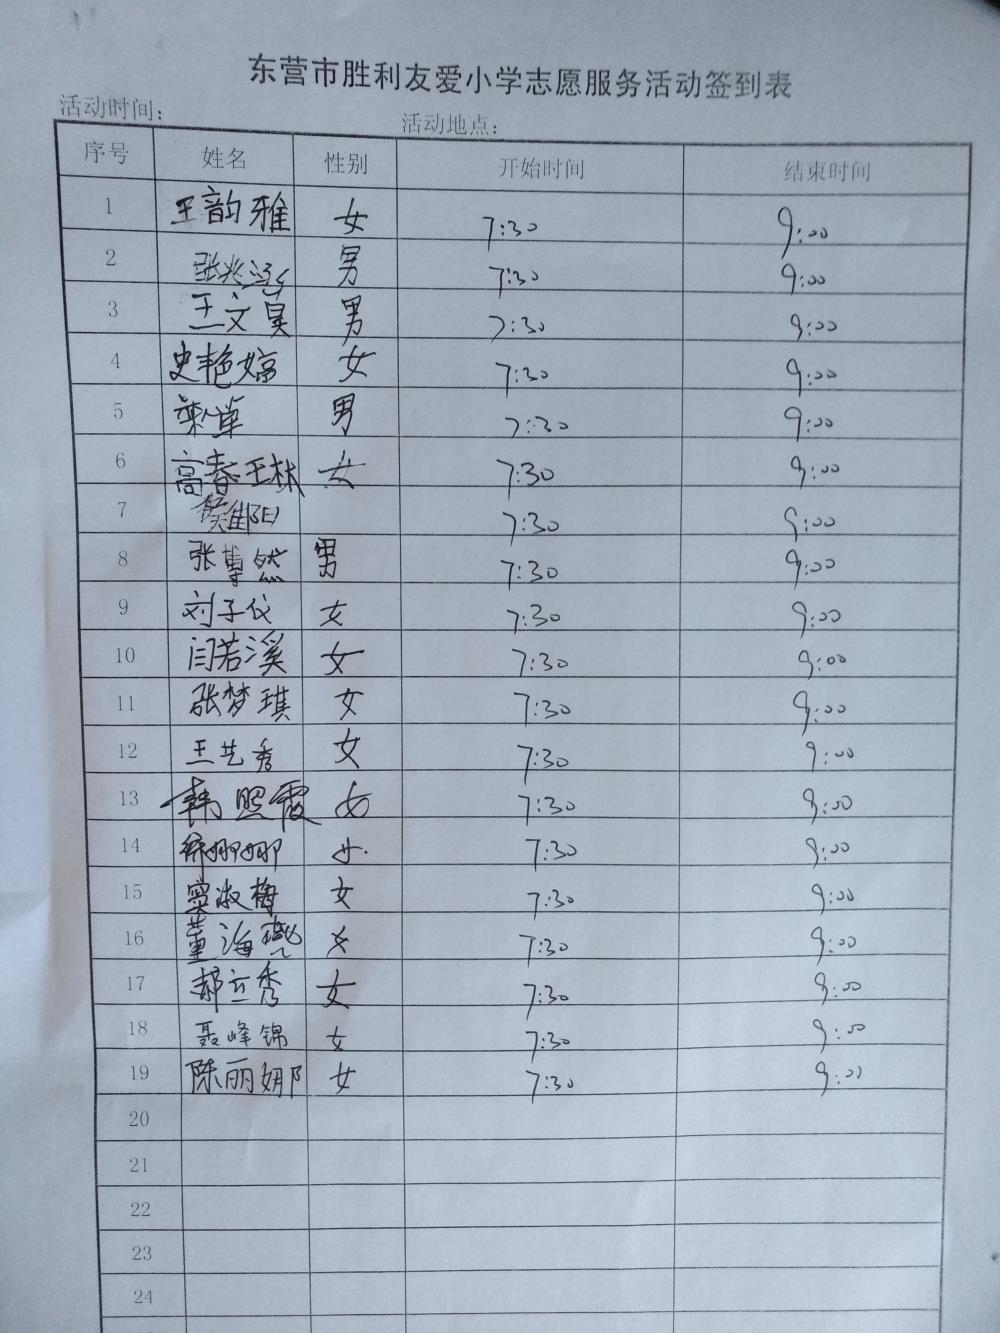 东营市胜利友爱小学志愿服务活动签到表
活动时间： 活动地点：
序号 姓名 性别 开始时间 结束时间
1 王韵雅 女 7:30 9:00
2 张兆 男 7:30 9:00
3 王文昊 男 7:30 9:00
4 史艳婷 女 7:30 9:00
5 男 7:30 9:00
6 高春琳 女 7:30 9:00
7 7:30 9:00
8 张博然 男 7:30 9:00
9 刘子仪 女 7:30 9:00
10 闫若溪 女 7:30 9:00
11 张梦琪 女 7:30 9:00
12 王艺秀 女 7:30 9:00
13 韩照霞 女 7:30 9:00
14 徐娜娜 女 7:30 9:00
15 窦淑梅 女 7:30 9:00
16 董海 女 7:30 9:00
17 郝立秀 女 7:30 9:00
18 聂峰锦 女 7:30 9:00
19 陈丽娜 女 7:30 9:00
20
21
22
23
24